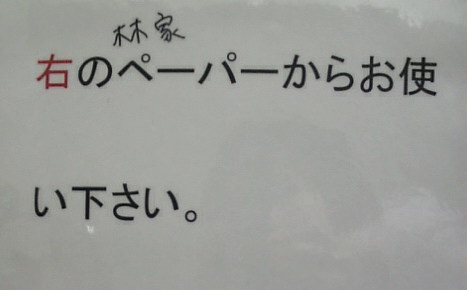 林家
右のペーパーからお使
い下さい。